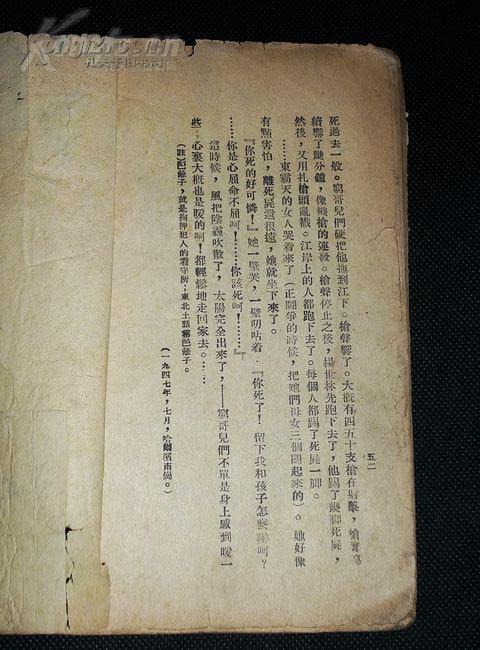 五二
死過去一般。窮哥兒們硬把他拖到江下。槍聲響了。大概有四五十支槍在射擊，槍聲
續響了幾分鐘，像機槍的連發。槍聲停止之後，楊世林先跑下去了，他踢了幾脚死屍，
然後，又用扎槍頭亂戳。江岸上的人都跑下去了。每個人都踢了死屍一脚。
……東霸天的女人哭着來了（正鬥爭的時候，把她們母女三個關起來的）。她好像
有點害怕，離死屍還很遠，她就坐下來了。
『你死的好可憐！』她一壁哭，一壁叨咕着：『你死了！留下我和孩子怎麼辦呵？
……你是心屈命不屈呵！……你該死呵！……』
這時候，風把陰霾吹散了，太陽完全出來了，——窮哥兒們不單是身上感到暖一
些，心裏大概也是暖的呵！都輕鬆地走回家去。……
（一九四七年，七月，哈爾濱南崗。）
籬子，就是拘押犯人的看守所；東北土話
籬子。
Kongfz.com
孔夫子旧书网